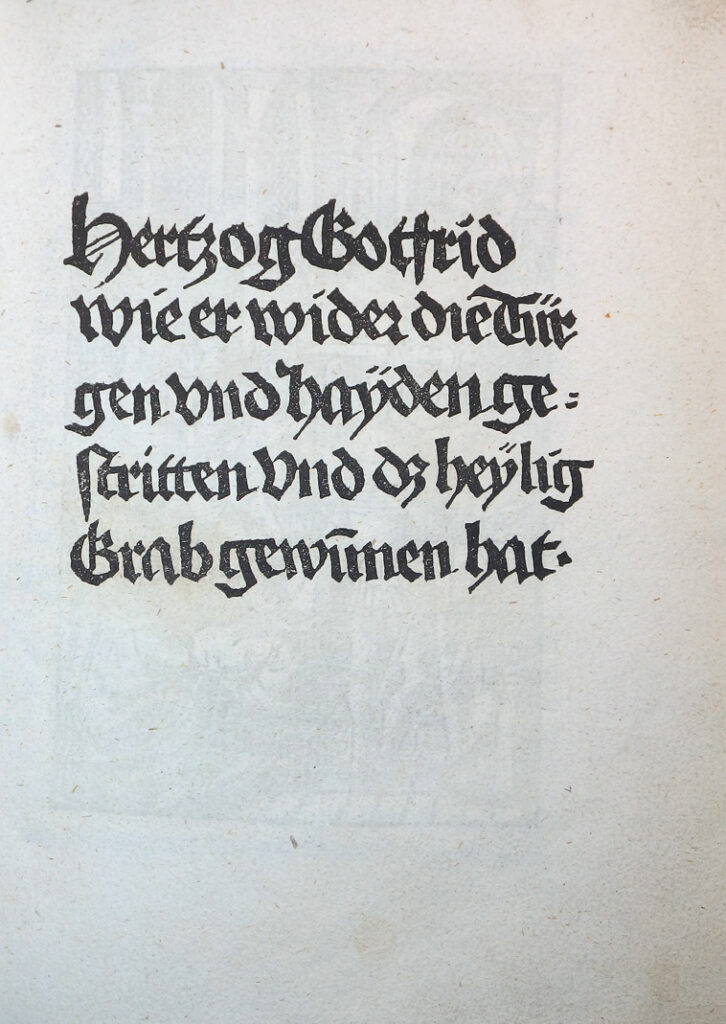 Hertzog Gotfrid
wie er wider die Tür
gen vnd haÿden ge=
stritten Vnd dz heÿlig
Grab gewūnen hat.